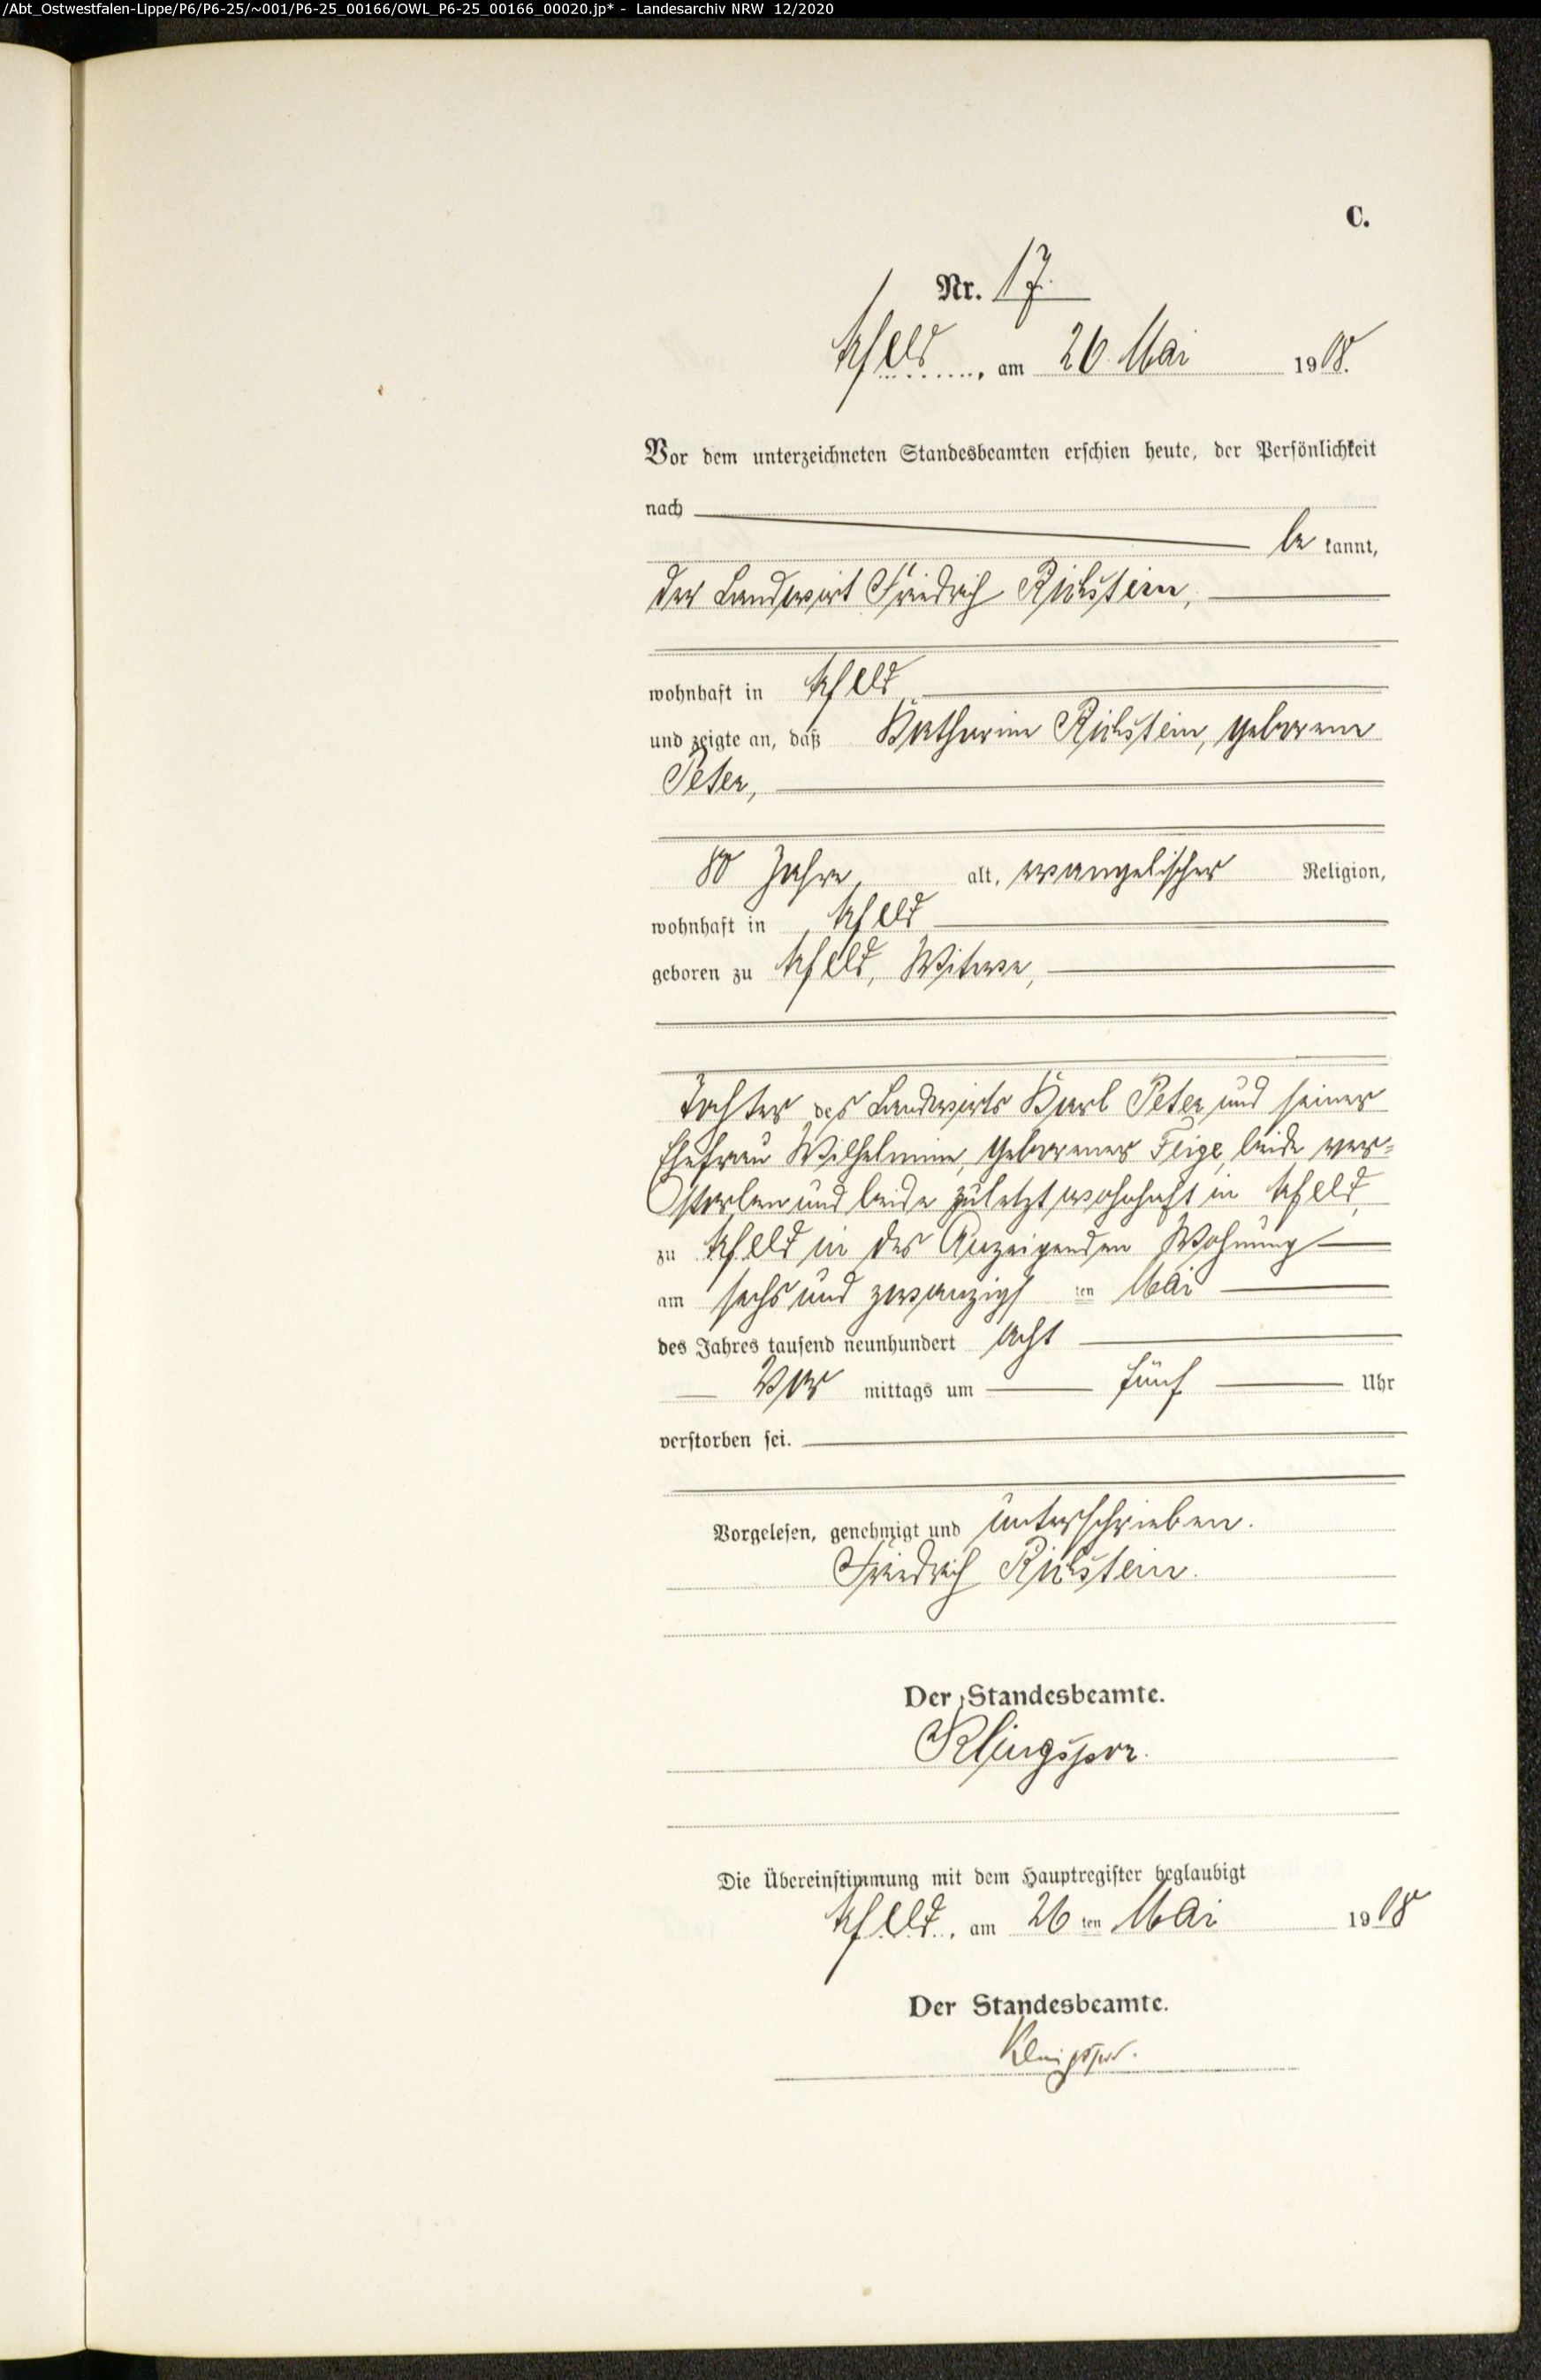 /Abt_Ostwestfalen-Lippe/P6/P6-25/~001/P6-25_00166/OWL_P6-25_00166_00020.jp* - Landesarchiv NRW 12/2020
C.
Nr. 17.
Arfeld, am 26. Mai 1908.
Vor dem unterzeichneten Standesbeamten erschien heute, der Persönlichkeit
nach
be kannt,
der Landwirt Friedrich Richstein,
wohnhaft in Arfeld
und zeigte an, daß Katharine Richstein, geborene
Peter,
80 Jahre, alt, evangelischer Religion,
wohnhaft in Arfeld
geboren zu Arfeld, Witwe,
Tochter des Landwirts Karl Peter und seiner
Ehefrau Wilhelmine, geborener Feige, beide ver-
storben und beide zuletzt wohnhaft in Arfeld,
zu Arfeld in des Anzeigenden Wohnung
am sechs und zwanzigs ten Mai
des Jahres tausend neunhundert acht
Vor mittags um fünf Uhr
verstorben sei.
Vorgelesen, genehmigt und unterschrieben.
Friedrich Richstein.
Der Standesbeamte.
Klingspor.
Die Übereinstimmung mit dem Hauptregister beglaubigt
Arfeld, am 26 ten Mai 1908
Der Standesbeamte.
Klingspor.